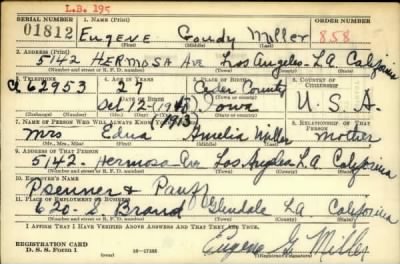 L.B. 195
SERIAL NUMBER 1. NAME (Print) ORDER NUMBER
01812 Eugene Goudy Miller 858
(First) (Middle) (Last)
2. ADDRESS (Print)
5142 Hermosa Ave Los Angeles - L.A. California
(Number and street or R. F. D. number) (Town) (County) (State)
3. TELEPHONE 4. AGE IN YEARS 5. PLACE OF BIRTH 6. COUNTRY OF CITIZENSHIP
62953 27 Cedar County
DATE OF BIRTH
Oct. 12 - (1913) Iowa U.S.A.
7. NAME OF PERSON WHO WILL ALWAYS KNOW YOUR ADDRESS 8. RELATIONSHIP OF THAT PERSON
Mrs Edna Amelia Miller Mother
(Mr., Mrs., Miss) (First) (Middle) (Last)
9. ADDRESS OF THAT PERSON
5142 - Hermosa Ave Los Angeles L.A. California
(Number and street or R. F. D. number) (Town) (County) (State)
10. EMPLOYER'S NAME
Psenner & Pauff
11. PLACE OF EMPLOYMENT OR BUSINESS
620 - S Brand Glendale L.A. California
(Number and street or R. F. D. number) (Town) (County) (State)
I AFFIRM THAT I HAVE VERIFIED ABOVE ANSWERS AND THAT THEY ARE TRUE.
REGISTRATION CARD
D. S. S. Form 1 16-17105 Eugene G. Miller
(Registrant's signature)